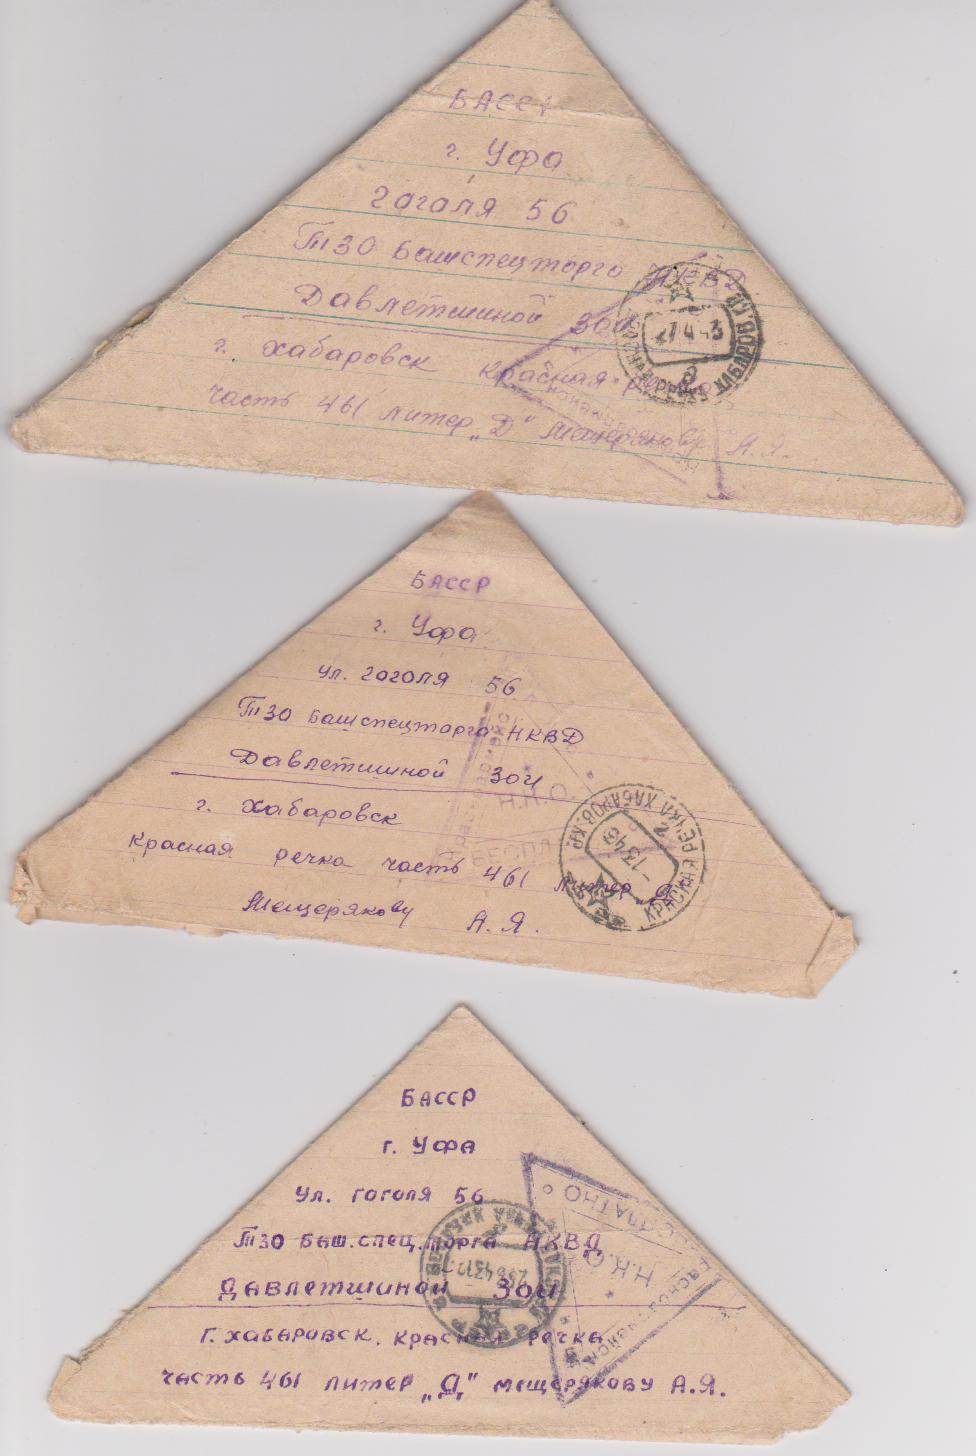 БАССР
г. Уфа
Гоголя 56
ТЗО Башспецторга НКВД
Давлетшиной Зои
г. Хабаровск Красная речка
часть 461 литер „Д" Мещерякову А.Я.
27 4 43
КРАСНАЯ РЕЧКА ХАБАРОВ. КР.
БАССР
г. Уфа
ул. Гоголя 56
ТЗО Башспецторга НКВД
Давлетшиной Зои
г. Хабаровск
Красная речка часть 461 литер „Д"
Мещерякову А.Я.
Н.К.О.
БЕСПЛ
КРАСНАЯ РЕЧКА ХАБАРОВ. КР.
БАССР
г. УФА
Ул. Гоголя 56
ТЗО Баш.спец.торга НКВД
Давлетшиной Зои
Г. Хабаровск. Красная речка
часть 461 литер „Д" мещерякову А.Я.
Красноармейск
Н.К.О.
ПЛАТНО